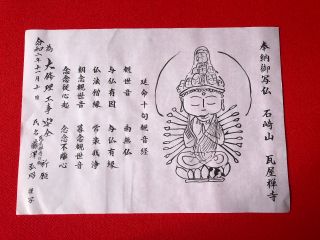 奉納御写仏 石崎山 瓦屋禅寺
延命十句観音経
観世音 南無仏
与仏有因 与仏有縁
仏法僧縁 常楽我浄
朝念観世音 暮念観世音
念念従心起 念念不離心
為 大修理工事安全 祈願
令和二年十一月十日 氏名
謹写